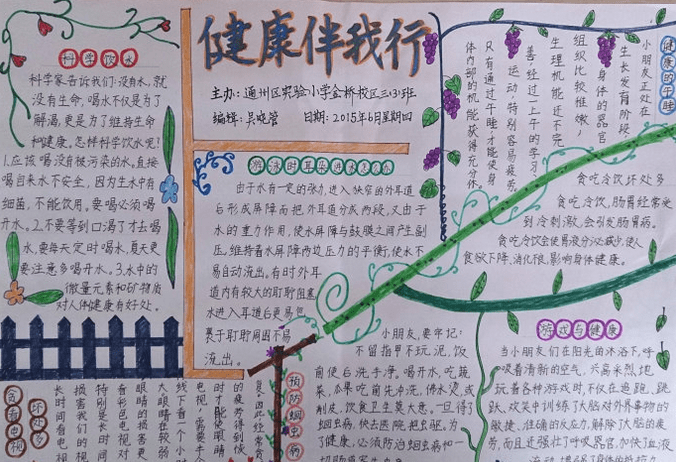 健康伴我行
主办：通州区实验小学金桥校区三(3)班
编辑：吴晓管 日期：2015年6月星期四
科学饮水
科学家告诉我们：没有水，就
没有生命，喝水不仅是为了
解渴，更是为了维持生命
和健康，怎样科学饮水呢？
1.应该喝没有被污染的水，直接
喝自来水不安全，因为生水中有
细菌，不能饮用。要喝必须喝
开水。2.不要等到口渴了才去喝
水，要每天定时喝水，夏天更
要注意多喝开水。3.水中的
微量元素和矿物质
对人体健康有好处。
游泳时耳朵进水怎么办
由于水有一定的张力，进入狭窄的外耳道
后形成屏障而把外耳道分成两段，又由于
水的重力作用，使水屏障与鼓膜之间产生副
压，维持着水屏障两边压力的平衡，使水不
易自动流出。有时外耳
道内有较大的耵聍阻塞
水进入耳道后更易包
裹于耵聍周围不易
流出。
健康的午睡
小朋友正处在
生长发育阶段，
身体的器官
组织比较稚嫩，
生理机能还不完
善，经过一上午的学习、
运动，特别容易疲劳，
只有通过午睡才能使身
体内部的机能获得充分休
贪吃冷饮坏处多
贪吃冷饮，肠胃经常受
到冷刺激，会引发肠胃病。
贪吃冷饮会使胃液分泌减少，使人
食欲下降，消化很，影响身体健康。
游戏与健康
当小朋友们在阳光的沐浴下，呼
吸着清新的空气，兴高采烈地
玩着各种游戏时，不仅在追跑、跳
跃、欢笑中训练了大脑对外界事物的
敏捷、准确的反应力，解除了大脑的疲
劳，而且还强壮了呼吸器官，加快了血液
预防蛔虫病
小朋友，要牢记：
不留指甲不玩泥，饭
前便后洗手净。喝开水，吃蔬
菜，瓜果吃前先冲洗，沸水烫，或
削皮，饮食卫生莫大意。一旦得了
蛔虫病，快去医院把虫驱。为
了健康，必须防治蛔虫病和一
贪看电视
坏处多
长时间看电视
损害我们的视
特别是长时间
看彩色电视对
眼睛的损害更
大眼睛在较弱
线下看一个小时
电视，需要半个
时才能使眼睛
的疲劳得到恢
复，因此经常贪